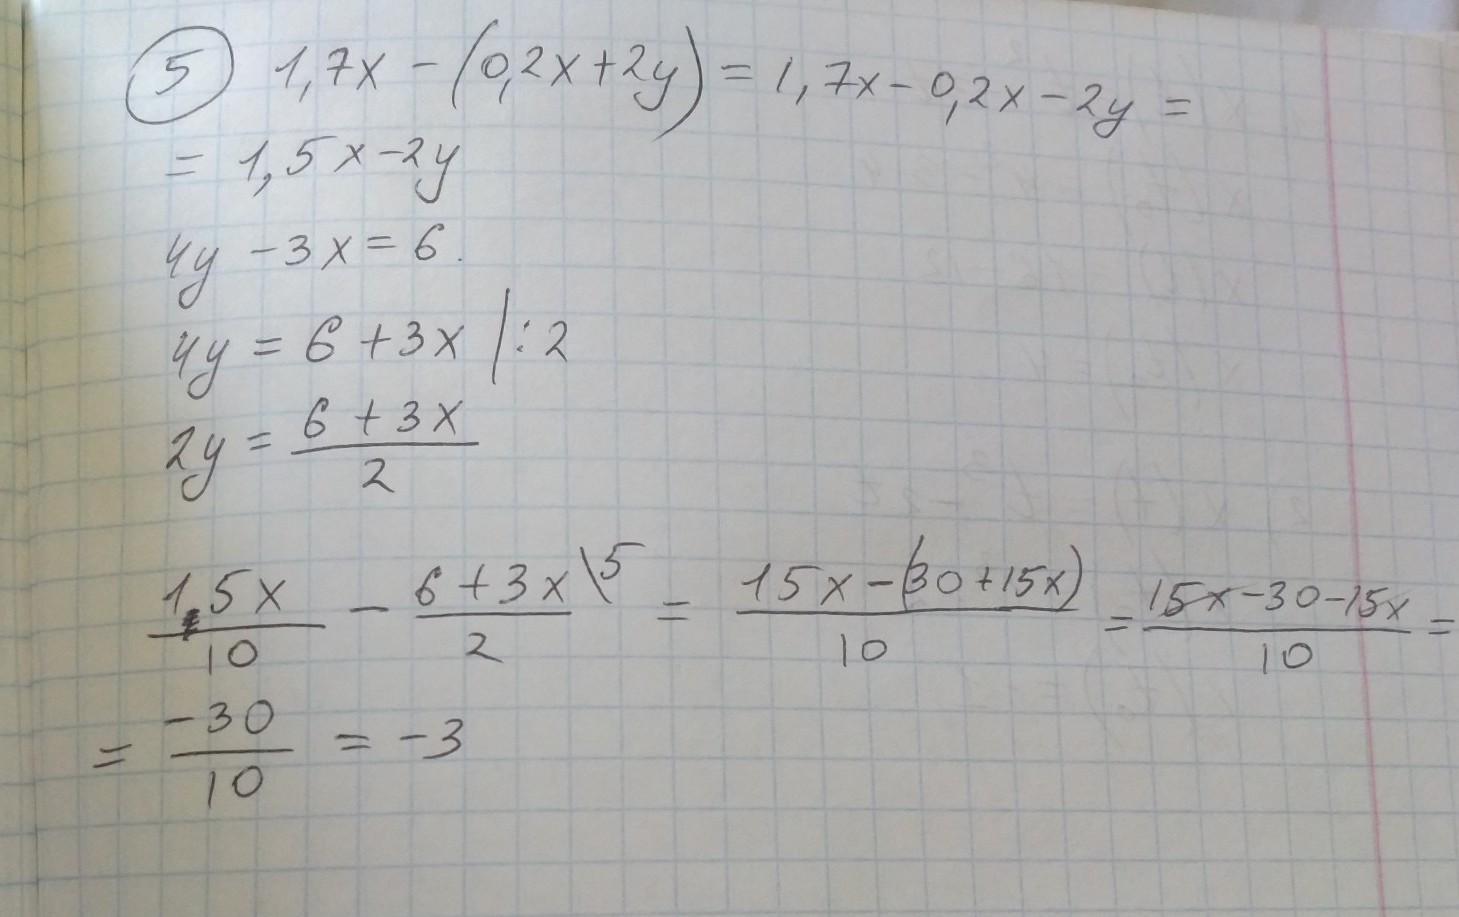 5 1,7x - (0,2x+2y) = 1,7x - 0,2x - 2y =
= 1,5x - 2y
4y - 3x = 6.
4y = 6 + 3x | : 2
2y = (6 + 3x)/2
15x/10 - (6 + 3x)/2 \5 = (15x - (30 + 15x))/10 = (15x - 30 - 15x)/10 =
= -30/10 = -3